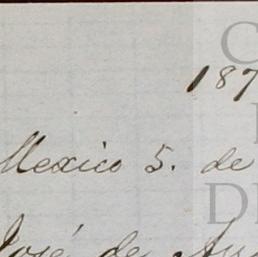 187
Mexico 5. de
José de